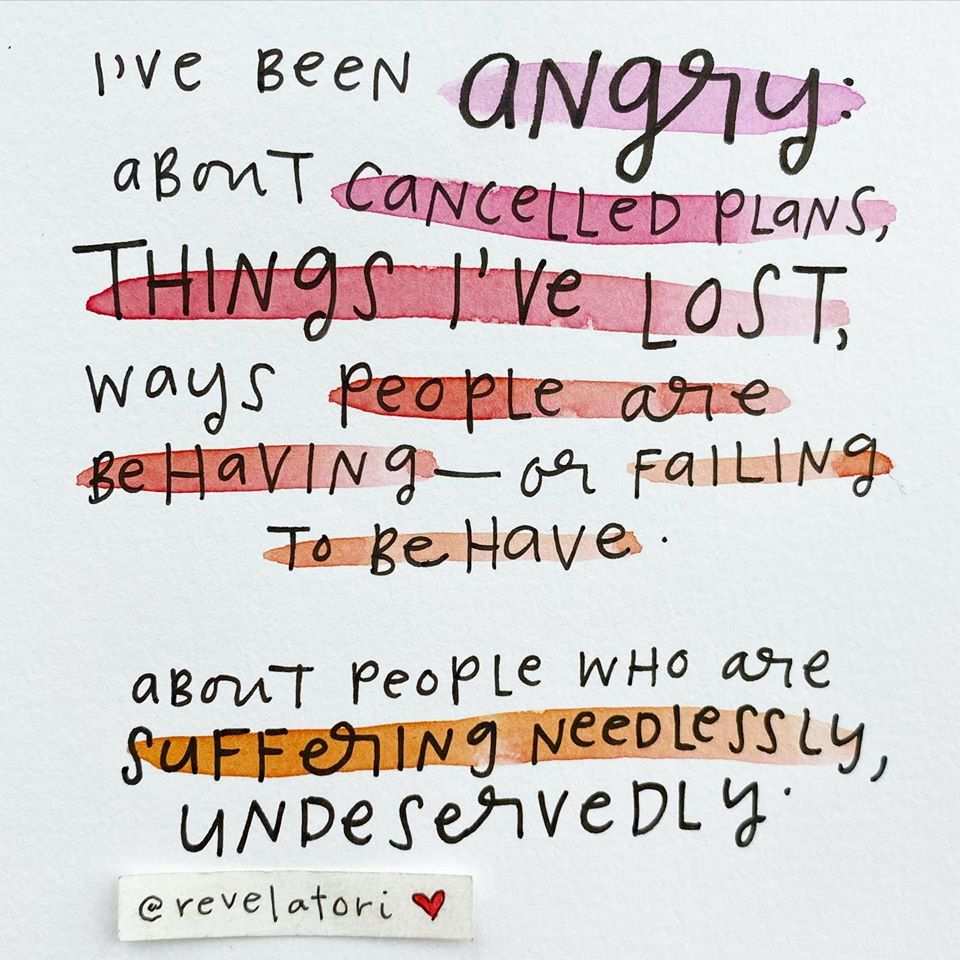 I'VE BEEN ANGRY:
ABOUT CANCELLED PLANS,
THINGS I'VE LOST,
WAYS PEOPLE ARE
BEHAVING—OR FAILING
TO BEHAVE.
ABOUT PEOPLE WHO ARE
SUFFERING NEEDLESSLY,
UNDESERVEDLY.
@revelatori ❤